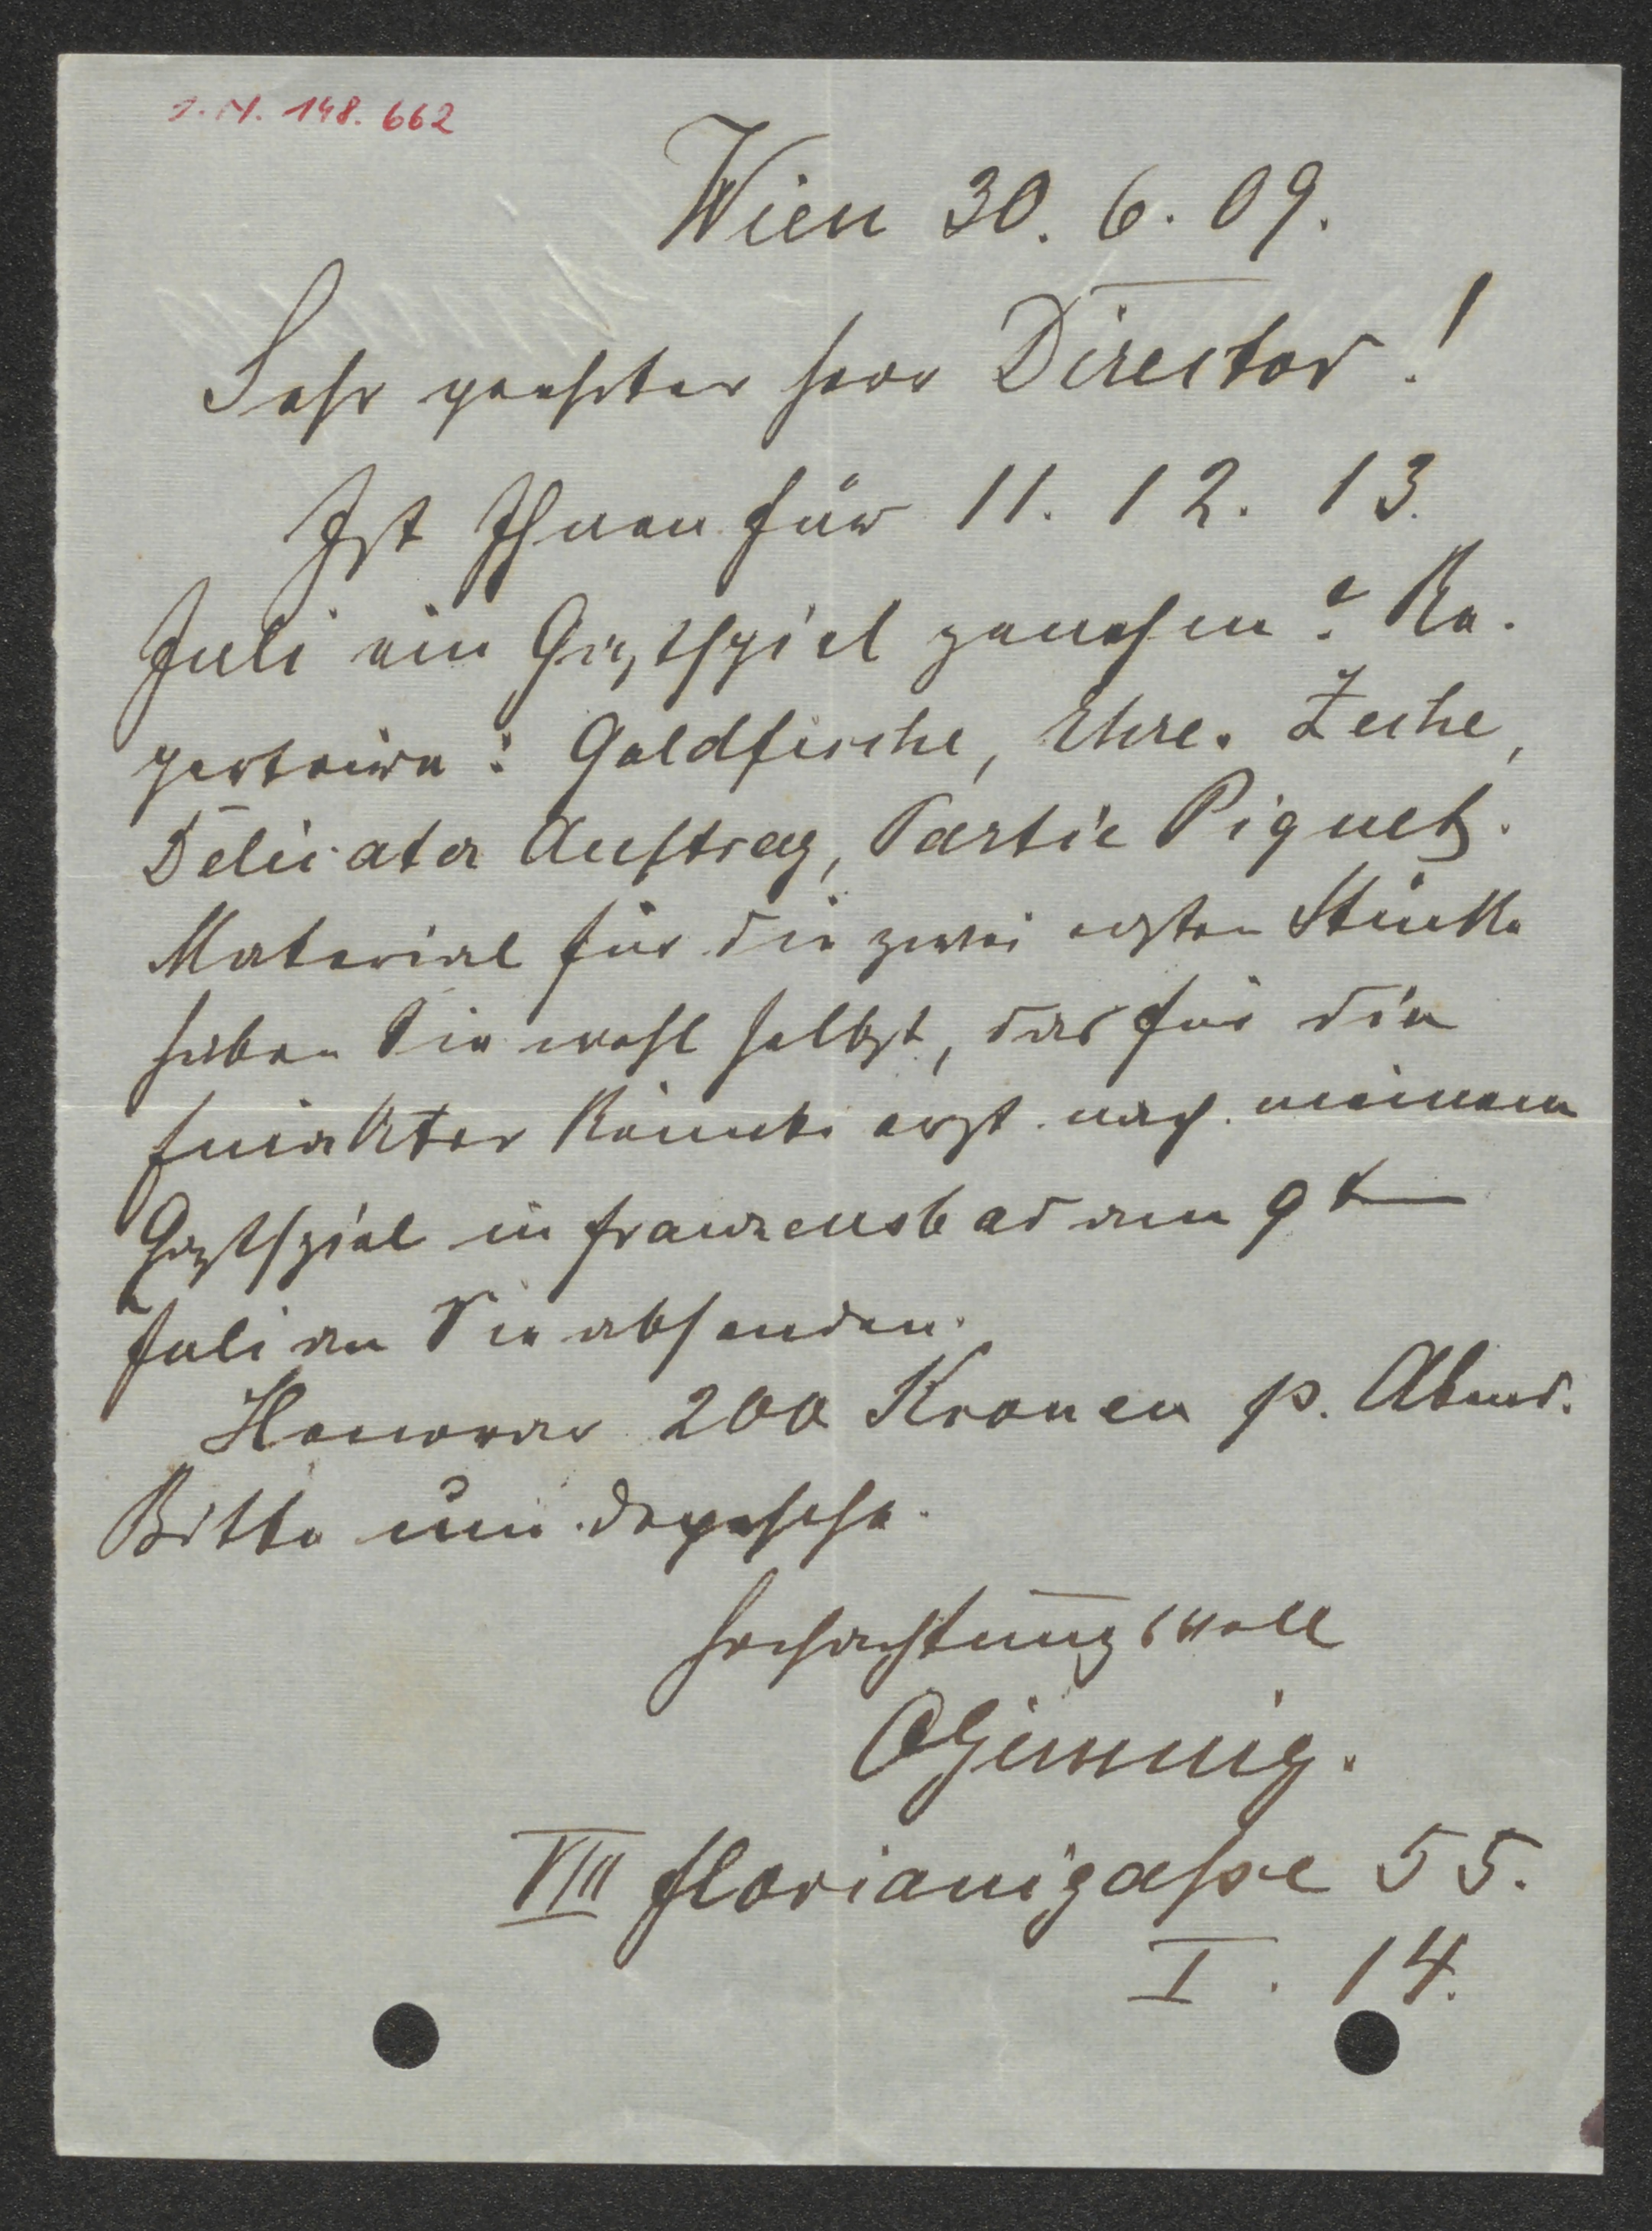 I.N. 148.662
Wien 30. 6. 09.
Sehr geehrter Herr Director!
Ist Ihnen für 11. 12. 13.
Juli ein Gastspiel genehm? Re.
pertoire: Goldfische, Ehre. Zeche,
Delicater Auftrag, Partie Piquet.
Material für die zwei ersten Stücke
haben Sie wohl selbst, das für die
Einakter könnte erst nach meinem
Gastspiel in Franzensbad am 9t
Juli an Sie absenden.
Honorar 200 Kronen p. Abend.
Bitte um Depesche.
Hochachtungsvoll
VIII Florianigasse 55.
I. 14.